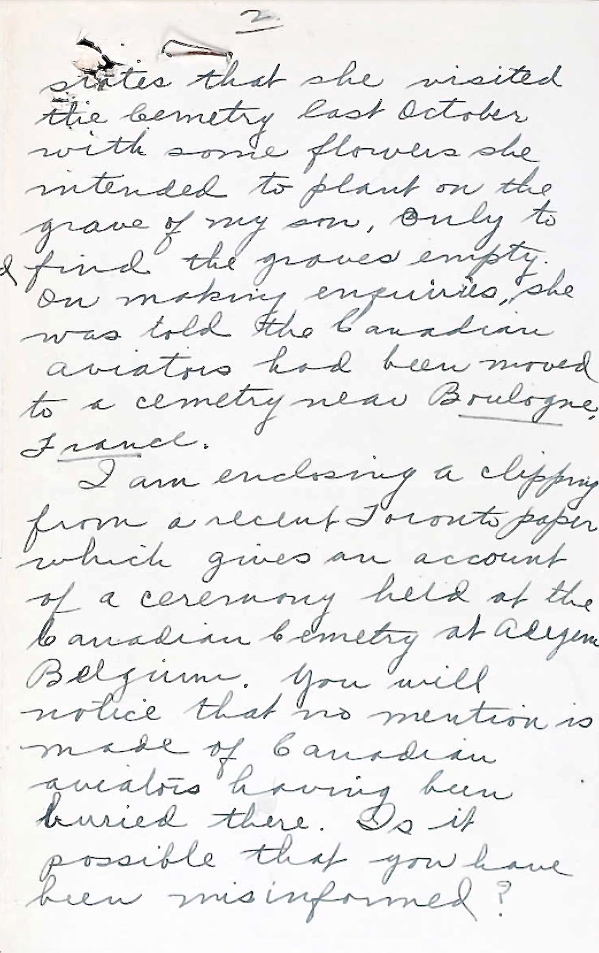 2
states that she visited
the Cemetry last October
with some flowers she
intended to plant on the
grave of my son, only to
find the graves empty.
On making enquiries, she
was told the Canadian
aviators had been moved
to a cemetry near Boulogne,
France.
I am enclosing a clipping
from a recent Toronto paper
which gives an account
of a ceremony held at the
Canadian Cemetry at Adegem
Belgium. You will
notice that no mention is
made of Canadian
aviators having been
buried there. Is it
possible that you have
been misinformed?